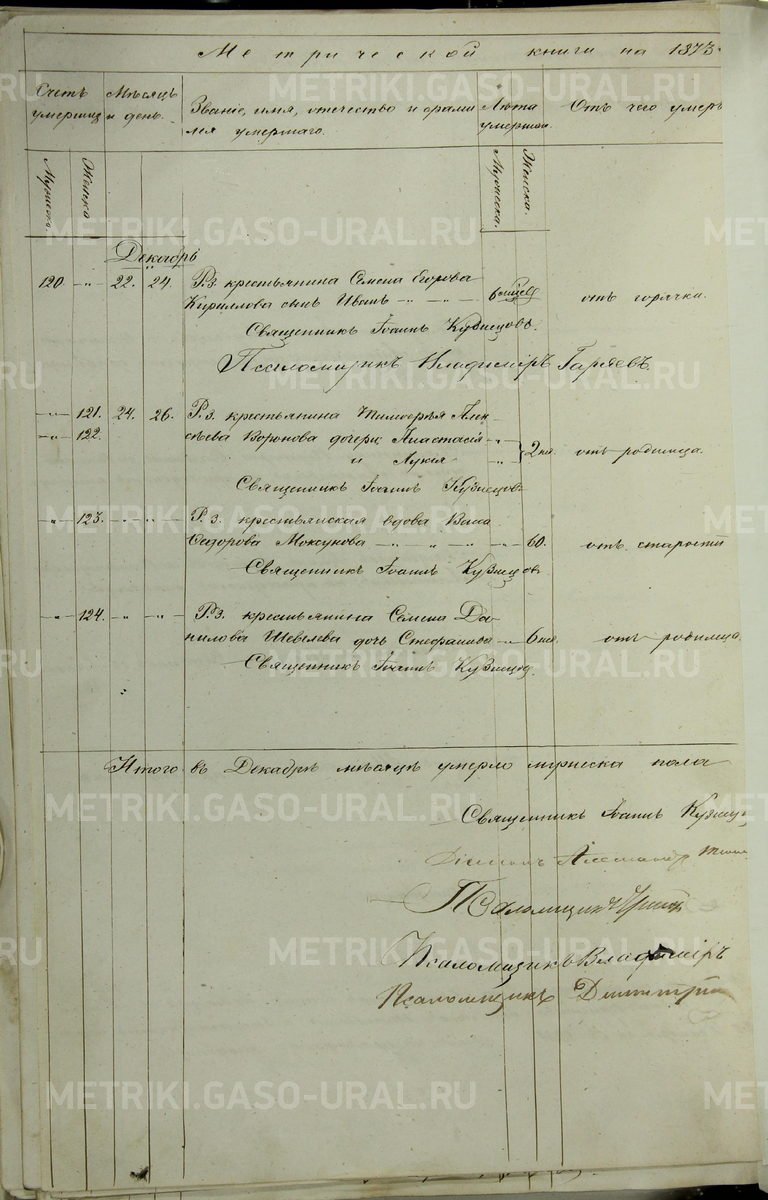 Метрической книги на 1873
Счетъ умершихъ
Мѣсяцъ и день.
Званіе, имя, отечество и фами
лія умершаго.
Лѣта умершаго.
Отъ чего умеръ
Мужеска.
Женска
Мужеска.
Женска.
Декабрь
120. -"- 22. 24. Р.З. крестьянина Семена Егорова
Кириллова сынъ Иванъ -"- -"- 6 отъ горячки.
Священникъ Іоаннъ Кузнецовъ.
Псаломщикъ Владиміръ Гаряевъ.
-"- 121. 24. 26. Р.З. крестьянина Тимофея Алек
-"- 122. сѣева Воронова дочери Анастасія -"-
и Лукія -"- } 2 нед. отъ родимца.
Священникъ Іоаннъ Кузнецовъ
-"- 123. -"- -"- Р.З. крестьянская вдова
Сидорова -"- -"- -"- 60. отъ старости
Священникъ Іоаннъ Кузнецовъ
-"- 124. -"- -"- Р.З. крестьянина Семена Да-
нилова Шевелева дочь Стефанида -"- 6 нед. отъ родимца.
Священникъ Іоаннъ Кузнецовъ.
Итого въ Декабрѣ мѣсяцѣ умерло мужеска пола
Священникъ Іоаннъ Кузнец
Діаконъ
Псаломщикъ
Псаломщикъ Владиміръ
Псаломщикъ Димитрій
METRIKI.GASO-URAL.RU